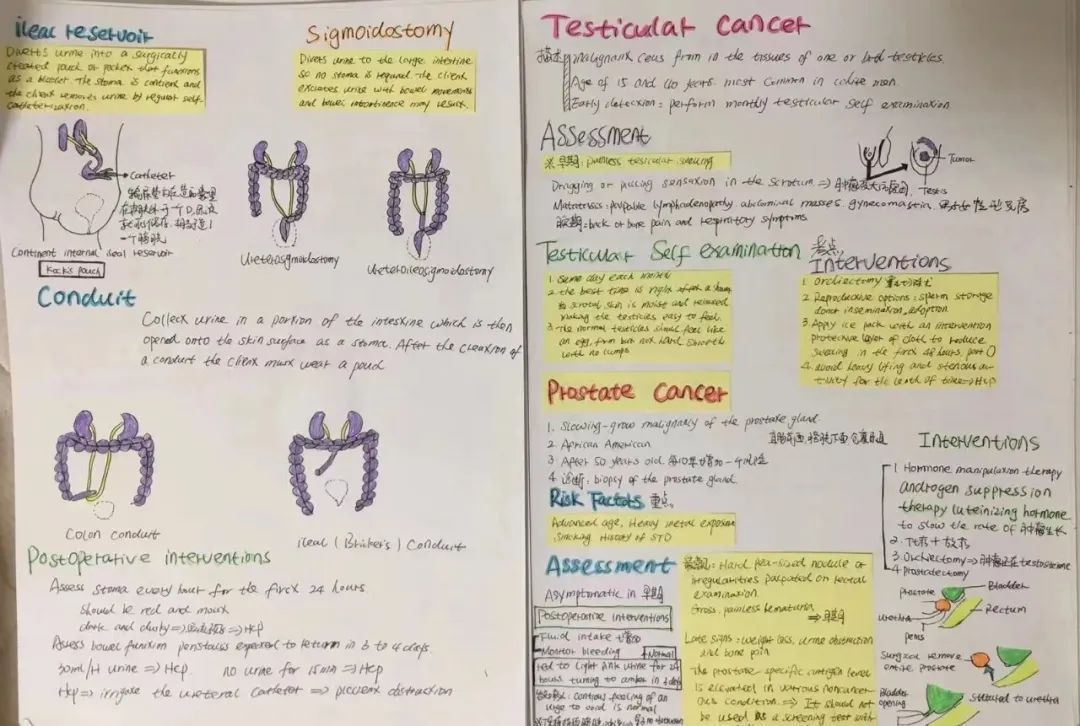 ileal reservoir
Diverts urine into a surgically
created pouch or pocket that functions
as a bladder The stoma is continent and
the client removes urine by regular self
catheterization.
Catheter
一个膀胱
Continent internal ileal reservoir
Kock's pouch
Sigmoidostomy
Diverts urine to the large intestine
so no stoma is required The client
excretes urine with bowel movements
and bowel incontinence may result.
Ureterosigmoidostomy
Ureteroileosigmoidostomy
Conduit
Collect urine in a portion of the intestine which is then
opened onto the skin surface as a stoma. After the creation of
a conduit the client must wear a
Colon conduit
ileal (Bricker's) Conduit
Postoperative interventions
Assess stoma every hour for the first 24 hours
should be red and moist
dark and dusky => => HCP
Assess bowel function peristalsis expected to return in 3 to 4 days.
30ml/H urine => HCP no urine for 15min => HCP
HCP => irrigate the ureteral catheter => prevent obstruction
Testicular cancer
描述 malignant cells form in the tissues of one or both testicles.
Age of 15 and 40 years. most common in white men.
Early detection: perform monthly testicular self examination
Assessment
※早期: painless testicular swelling
Dragging or pulling sensation in the scrotum =>
palpable lymphadenopathy abdominal masses. gynecomastia.
晚期: back or bone pain and respiratory symptoms
Tumor
Testis
Testicular Self examination 考点
1. Same day each month
2. the best time is right after a
scrotal skin is moist and relaxed
making the testicles easy to feel.
3. the normal testicles should feel like
an egg, firm but not hard. smooth
with no lumps
Interventions
1. Orchiectomy
2. Reproductive options: sperm storage
donor insemination. adoption
3. Apply ice pack with an intervention
protective layer of cloth to reduce
swelling in the first 48 hours.
4. avoid heavy lifting and
for the length of time => HCP
Prostate Cancer
1. Slowing-grow malignancy of the prostate gland.
2. African American
3. After 50 years old. 每10年增加一个
4. 诊断: biopsy of the prostate gland.
Risk Factors 重点
Advanced age, Heavy metal exposure
Smoking History of STD
Interventions
1 Hormone manipulation therapy
androgen suppression
therapy luteinizing hormone
to slow the rate of 肿瘤生长
2. 化疗+放疗
3. Orchiectomy => testosterone
4 prostatectomy
Assessment
Asymptomatic in 早期
Postoperative interventions
Fluid intake 增加
Monitor bleeding Normal
red to light pink urine for 24
hours turning to amber in 3 days
feeling of an
urge to void is normal
早期: Hard, pea-sized nodule or
irregularities palpated on rectal
examination.
Gross, painless hematuria
Late signs: weight loss, urine obstruction
and bone pain
The prostate-specific antigen level
is elevated in various noncancer
ous condition. => It should not
be used as a screening test with
Prostate
Bladder
Rectum
urethra
penis
Surgical remove
entire prostate
Bladder
opening
sutured to urethra